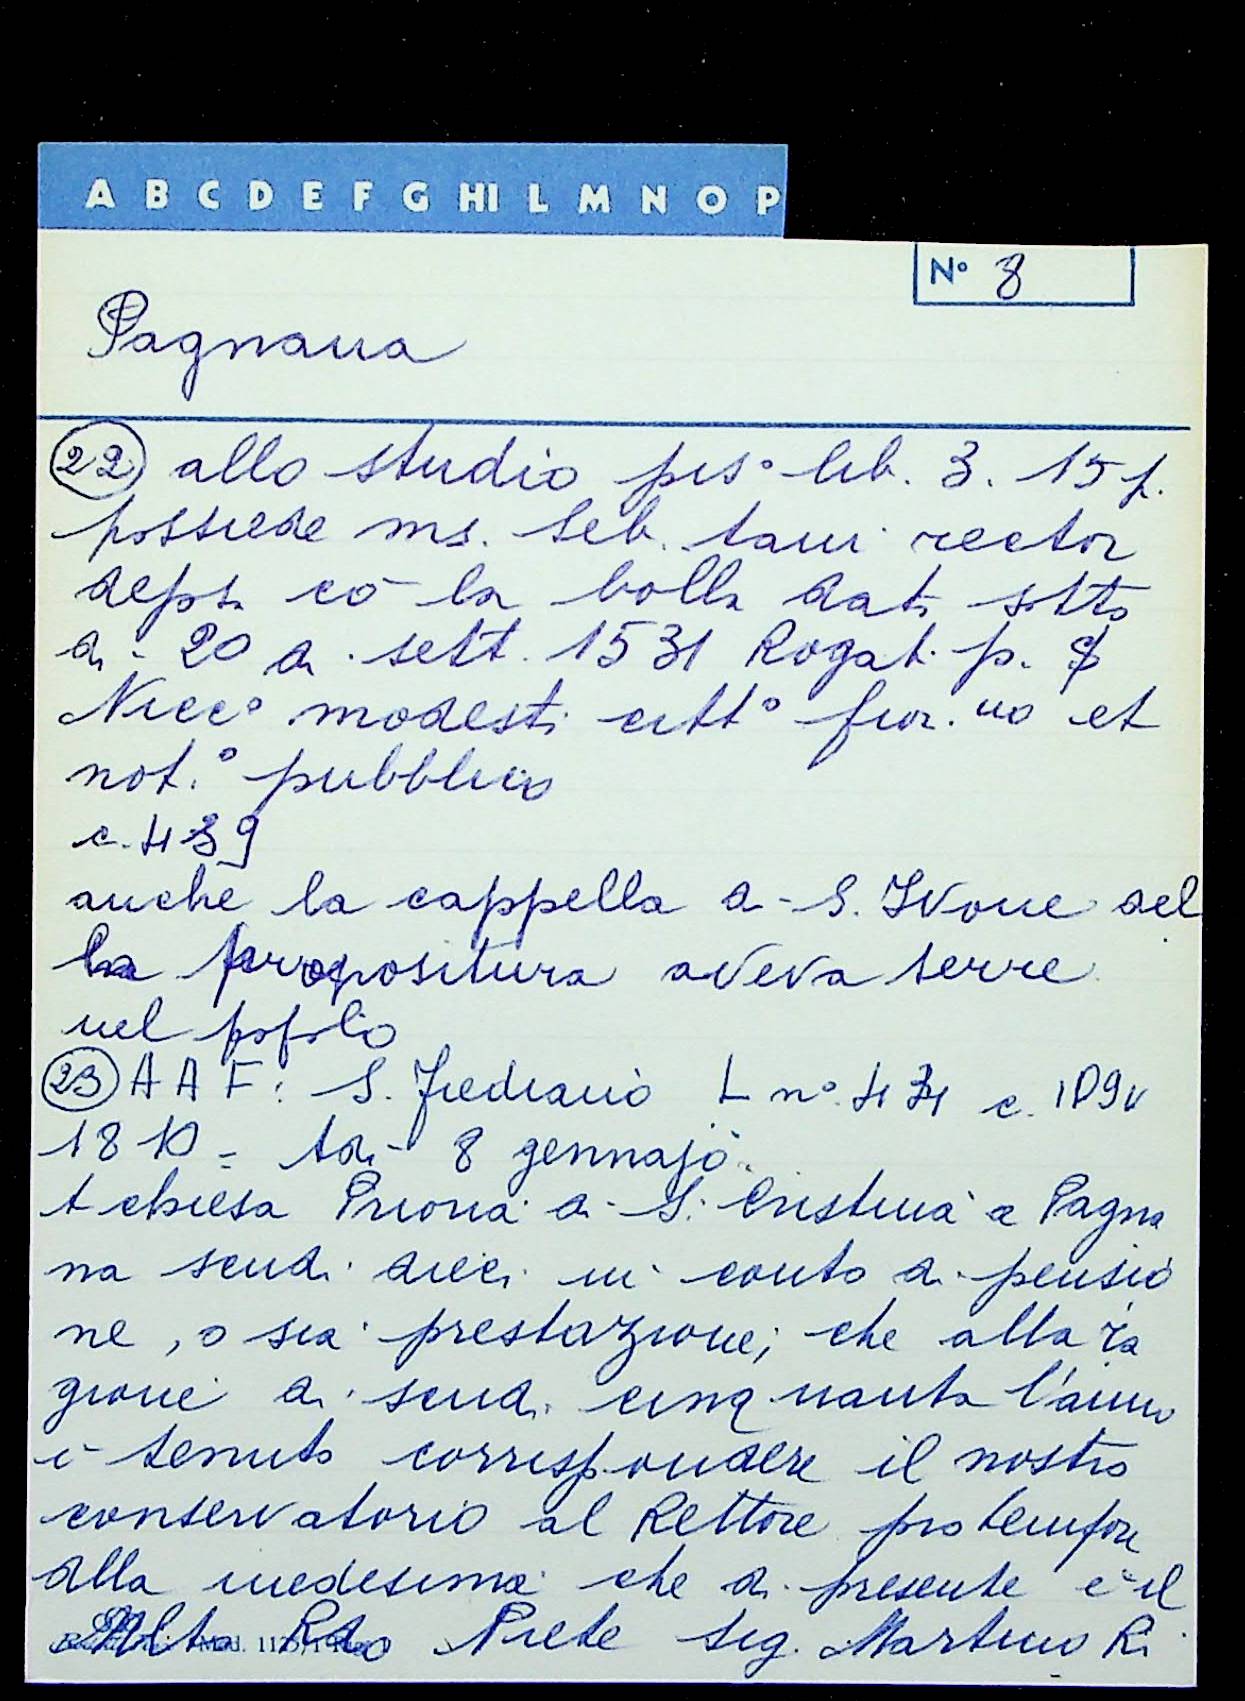 A B C D E F G HI L M N O P
N° 8
Pagnana
22 allo studio pis° lib. 3. 15 p.
possiede ms. Seb. tavi rector
deps. cō la bolla dati sotto
di 20 di sett. 1531 Rogat. p. S
Nicc° modesti citt° fior.no et
not.° pubblico
c. 439
anche la cappella di S. Ivone del
la propositura aveva terre
nel popolo
23 A A F: S. Frediano L n°. 474 c. 109v
1810 = Adi 8 gennajo
A chiesa Prioria di S. Cristina a Pagna
na scudi dieci in conto di pensio
ne, o sia prestazione, che alla ra
gione di scudi cinquanta l'anno
è tenuto corrispondere il nostro
conservatorio al Rettore pro tempore
della medesima che di presente è il
Molto Rdo Prete Sig. Martino Ri